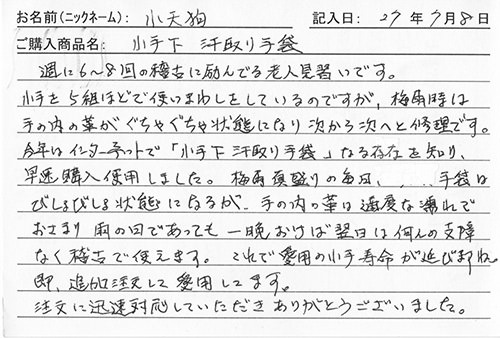 お名前(ニックネーム): 小天狗 記入日: 27年7月8日
ご購入商品名: 小手下 汗取り手袋
週に6〜8回の稽古に励んでる老人見習いです。
小手を5組ほどで使いまわしをしているのですが、梅雨時は
手の内の革がぐちゃぐちゃ状態になり次から次へと修理です。
今年はインターネットで「小手下汗取り手袋」なる存在を知り、
早速購入使用しました。梅雨真盛りの毎日、....手袋は
びしょびしょ状態になるが、手の内の革は適度な濡れで
おさまり雨の日であっても一晩おけば翌日は何んの支障
なく稽古で使えます。これで愛用の小手寿命が延びますね。
即、追加注文して愛用してます。
注文に迅速対応していただきありがとうございました。